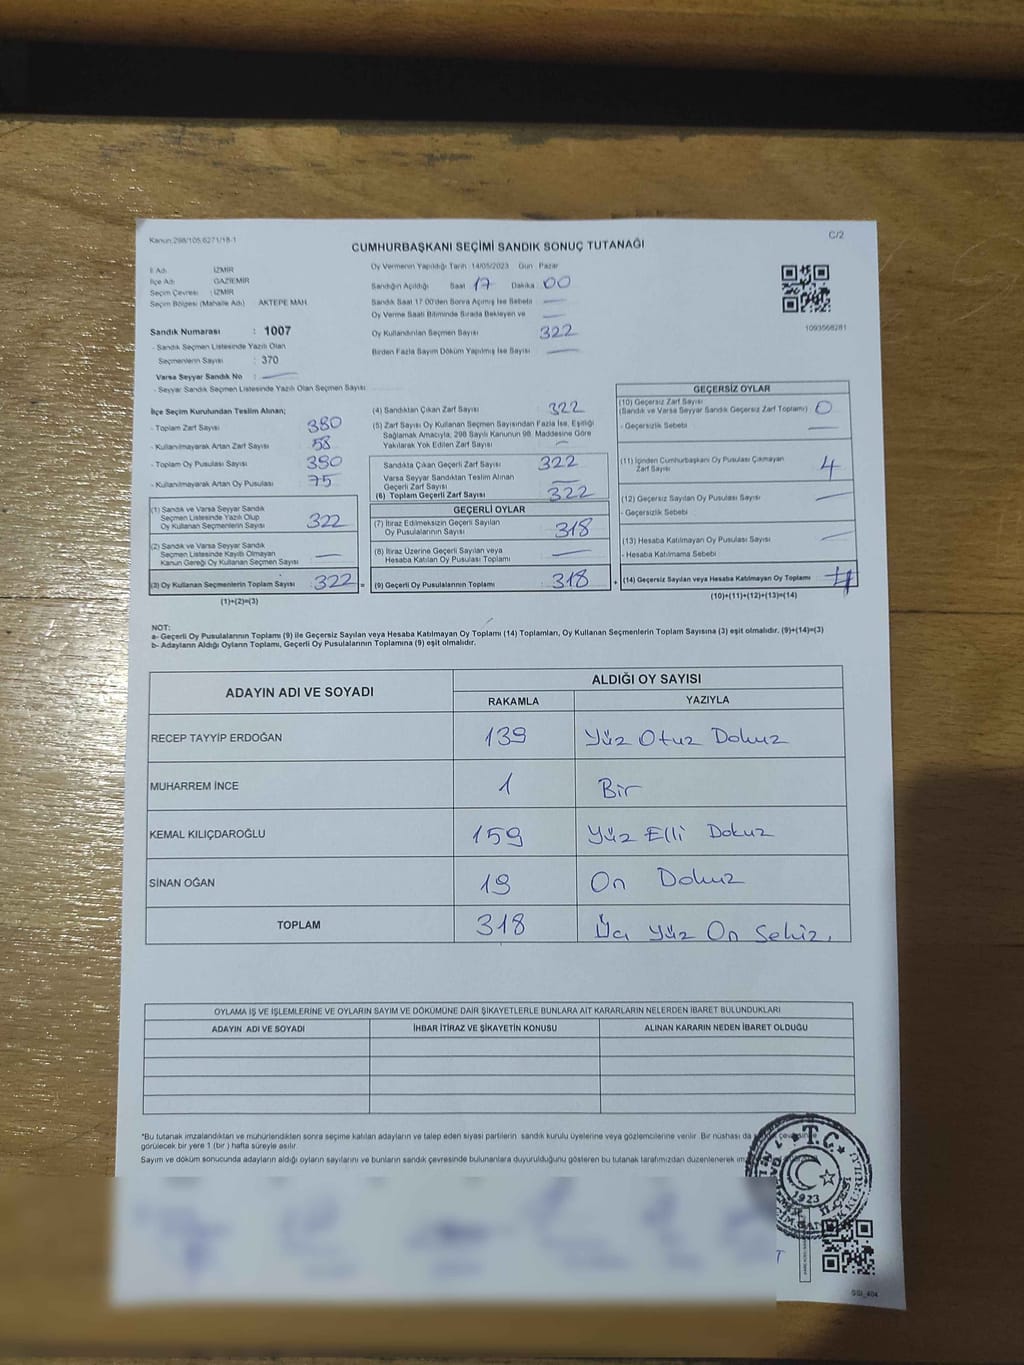 Kanun:298/105,6271/18-1
C/2
CUMHURBAŞKANI SEÇİMİ SANDIK SONUÇ TUTANAĞI
İl Adı : İZMİR
İlçe Adı : GAZİEMİR
Seçim Çevresi : İZMİR
Seçim Bölgesi (Mahalle Adı) AKTEPE MAH
Sandık Numarası : 1007
- Sandık Seçmen Listesinde Yazılı Olan
Seçmenlerin Sayısı : 370
Varsa Seyyar Sandık No :
- Seyyar Sandık Seçmen Listesinde Yazılı Olan Seçmen Sayısı
Oy Vermenin Yapıldığı Tarih :14/05/2023 Gün : Pazar
Sandığın Açıldığı Saat 17 Dakika 00
Sandık Saat 17:00'den Sonra Açımış İse Sebebi
Oy Verme Saati Bitiminde Sırada Bekleyen ve
Oy Kullandırılan Seçmen Sayısı 322
Birden Fazla Sayım Döküm Yapılmış İse Sayısı
1093568281
İlçe Seçim Kurulundan Teslim Alınan;
- Toplam Zarf Sayısı : 380
- Kullanılmayarak Artan Zarf Sayısı : 58
- Toplam Oy Pusulası Sayısı : 390
- Kullanılmayarak Artan Oy Pusulası : 75
(1) Sandık ve Varsa Seyyar Sandık
Seçmen Listesinde Yazılı Olup
Oy Kullanan Seçmenlerin Sayısı : 322
(2) Sandık ve Varsa Seyyar Sandık
Seçmen Listesinde Kayıtlı Olmayan
Kanun Gereği Oy Kullanan Seçmen Sayısı
(3) Oy Kullanan Seçmenlerin Toplam Sayısı : 322 =
(1)+(2)=(3)
(4) Sandıktan Çıkan Zarf Sayısı : 322
(5) Zarf Sayısı Oy Kullanan Seçmen Sayısından Fazla İse, Eşitliği
Sağlamak Amacıyla, 298 Sayılı Kanunun 98. Maddesine Göre
Yakılarak Yok Edilen Zarf Sayısı
Sandıkta Çıkan Geçerli Zarf Sayısı : 322
Varsa Seyyar Sandıktan Teslim Alınan
Geçerli Zarf Sayısı
(6) Toplam Geçerli Zarf Sayısı : 322
GEÇERLİ OYLAR
(7) İtiraz Edilmeksizin Geçerli Sayılan
Oy Pusulalarının Sayısı : 318
(8) İtiraz Üzerine Geçerli Sayılan veya
Hesaba Katılan Oy Pusulası Toplamı
(9) Geçerli Oy Pusulalarının Toplamı : 318 +
GEÇERSİZ OYLAR
(10) Geçersiz Zarf Sayısı
(Sandık ve Varsa Seyyar Sandık Geçersiz Zarf Toplamı) : 0
- Geçersizlik Sebebi
(11) İçinden Cumhurbaşkanı Oy Pusulası Çıkmayan
Zarf Sayısı : 4
(12) Geçersiz Sayılan Oy Pusulası Sayısı
- Geçersizlik Sebebi
(13) Hesaba Katılmayan Oy Pusulası Sayısı
- Hesaba Katılmama Sebebi
(14) Geçersiz Sayılan veya Hesaba Katılmayan Oy Toplamı : 4
(10)+(11)+(12)+(13)=(14)
NOT:
a- Geçerli Oy Pusulalarının Toplamı (9) ile Geçersiz Sayılan veya Hesaba Katılmayan Oy Toplamı (14) Toplamları, Oy Kullanan Seçmenlerin Toplam Sayısına (3) eşit olmalıdır. (9)+(14)=(3)
b- Adayların Aldığı Oyların Toplamı, Geçerli Oy Pusulalarının Toplamına (9) eşit olmalıdır.
ADAYIN ADI VE SOYADI
ALDIĞI OY SAYISI
RAKAMLA YAZIYLA
RECEP TAYYİP ERDOĞAN 139 Yüz Otuz Dokuz
MUHARREM İNCE 1 Bir
KEMAL KILIÇDAROĞLU 159 Yüz Elli Dokuz
SİNAN OĞAN 19 On Dokuz
TOPLAM 318 Üç Yüz On Sekiz.
OYLAMA İŞ VE İŞLEMLERİNE VE OYLARIN SAYIM VE DÖKÜMÜNE DAİR ŞİKAYETLERLE BUNLARA AİT KARARLARIN NELERDEN İBARET BULUNDUKLARI
ADAYIN ADI VE SOYADI İHBAR İTİRAZ VE ŞİKAYETİN KONUSU ALINAN KARARIN NEDEN İBARET OLDUĞU
*Bu tutanak imzalandıktan ve mühürlendikten sonra seçime katılan adayların ve talep eden siyasi partilerin sandık kurulu üyelerine veya gözlemcilerine verilir. Bir nüshası da
görülecek bir yere 1 (bir ) hafta süreyle asılır.
Sayım ve döküm sonucunda adayların aldığı oyların sayılarını ve bunların sandık çevresinde bulunanlara duyurulduğunu gösteren bu tutanak tarafımızdan düzenlenerek
T.C.
1923